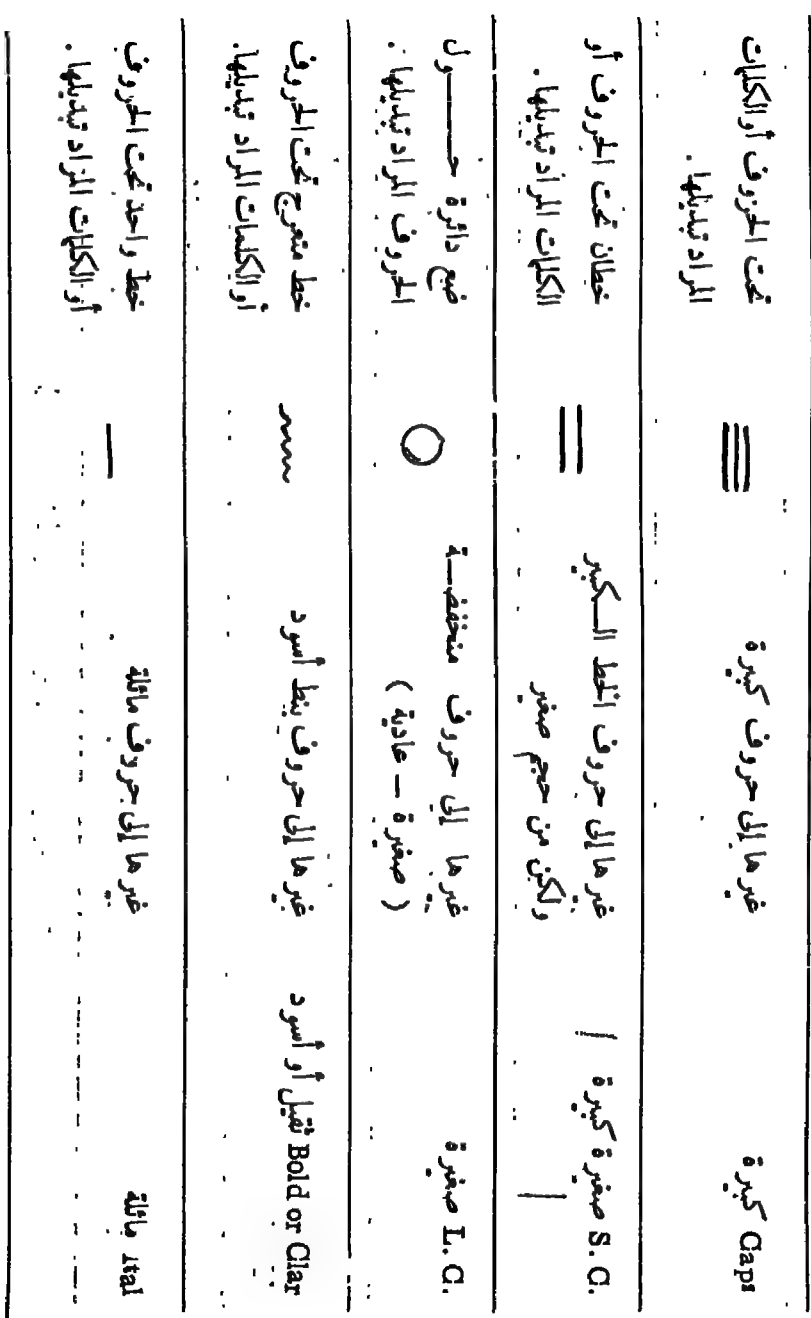 Caps كبيرة
غيرها إلى حروف كبيرة
تحت الحروف أو الكلمات
المراد تبديلها .
S. C. صغيرة كبيرة
غيرها إلى حروف الخط الـكبير
ولكن من حجم صغير
خطان تحت الحروف أو
الكلمات المراد تبديلها .
L. C. صغيرة
غيرها إلى حروف منخفضـة
( صغيرة – عادية )
ضع دائرة حــــول
الحروف المراد تبديلها .
Bold or Clar ثقيل أو أسود
غيرها إلى حروف بنط أسود
خط متعرج تحت الحروف
أو الكلمات المراد تبديلها .
Ital مائلة
غيرها إلى حروف مائلة
خط واحد تحت الحروف
أو الكلمات المراد تبديلها .